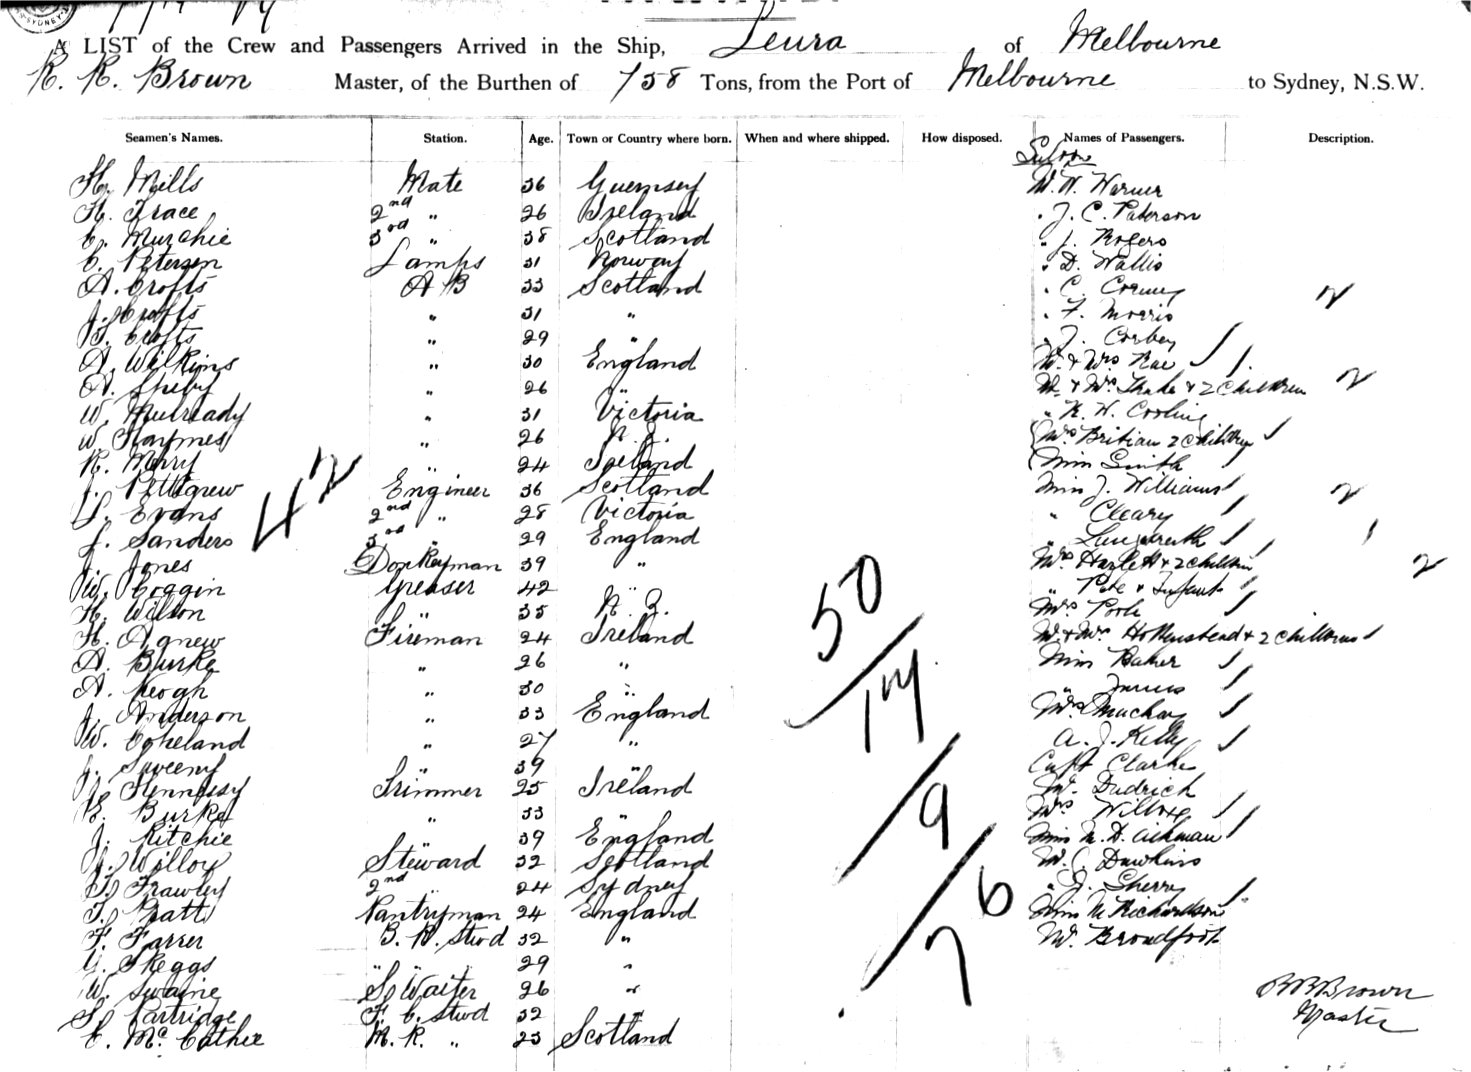 SYDNEY
A LIST of the Crew and Passengers Arrived in the Ship, Leura of Melbourne
R. R. Brown Master, of the Burthen of 758 Tons, from the Port of Melbourne to Sydney, N.S.W.
Seamen's Names. Station. Age. Town or Country where born. When and where shipped. How disposed. Names of Passengers. Description.
Saloon
H. Mills Mate 36 Guernsey Mr. W. Warner
H. Grace 2nd " 26 Ireland " J. C. Paterson
C. Murchie 3rd " 38 Scotland " J. Rogers
C. Petersen Lamps 31 Norway " D. Wallis
A. Crofts A B 33 Scotland " C.
J. Crofts " 31 " " F. Morris 2
Crofts " 29 " " J. Corbey
A. Wilkins " 30 England Mr. & Mrs. Rae
A. " 26 " Mr. & Mrs. & 2 Children 2
W. Mulready " 31 Victoria " K. W. Cooling
W. Haymes " 26 N. Z. Mrs 2 children
R. Merry " 24 Ireland Miss Smith
J. Pettigrew Engineer 36 Scotland Miss J. Williams 2
Evans 2nd " 28 Victoria " Cleary
J. Sanders 3rd " 29 England "
J. Jones Donkeyman 39 " Mrs & 2 children 2
W. Coggin Greaser 42 " " & Infant
H. Wilson " 35 N. Z. Mrs
H. Agnew Fireman 24 Ireland Mr. & Mrs. & 2 children
A. Burke " 26 " Miss Baker
A. Keogh " 30 " "
J. Anderson " 33 England Mrs
W. Copeland " 27 " A. J. Kelly
J. Sweeny " 39 " Capt Clarke
Hennessy Trimmer 25 Ireland Mr.
E. Burke " 33 " Mrs
J. Ritchie " 39 England Miss M. D. Aickman
Steward 32 Scotland Mr. Dawkins
Frawley 2nd " 24 Sydney " J. Sherry
Pratt Pantryman 24 England Miss M. Richardson
F. Farrer B. R. Stwd 32 " Mr. Broadfoot
Skeggs " " 29 "
W. Swaine S. Waiter 26 "
S. Partridge F. C. Stwd 32 "
C. McCathie M. R. " 23 Scotland
42
50
/
14
/
9
/
76
R R Brown
Master